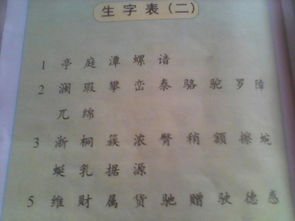 生字表(二)
1 亭 庭 潭 螺 谙
2 澜 瑕 攀 峦 泰 骆 驼 罗 障
兀 绵
3 浙 桐 簇 浓 臀 稍 额 擦 蜿
蜒 乳 据 源
5 维 财 属 货 驰 赠 驶 德 惑